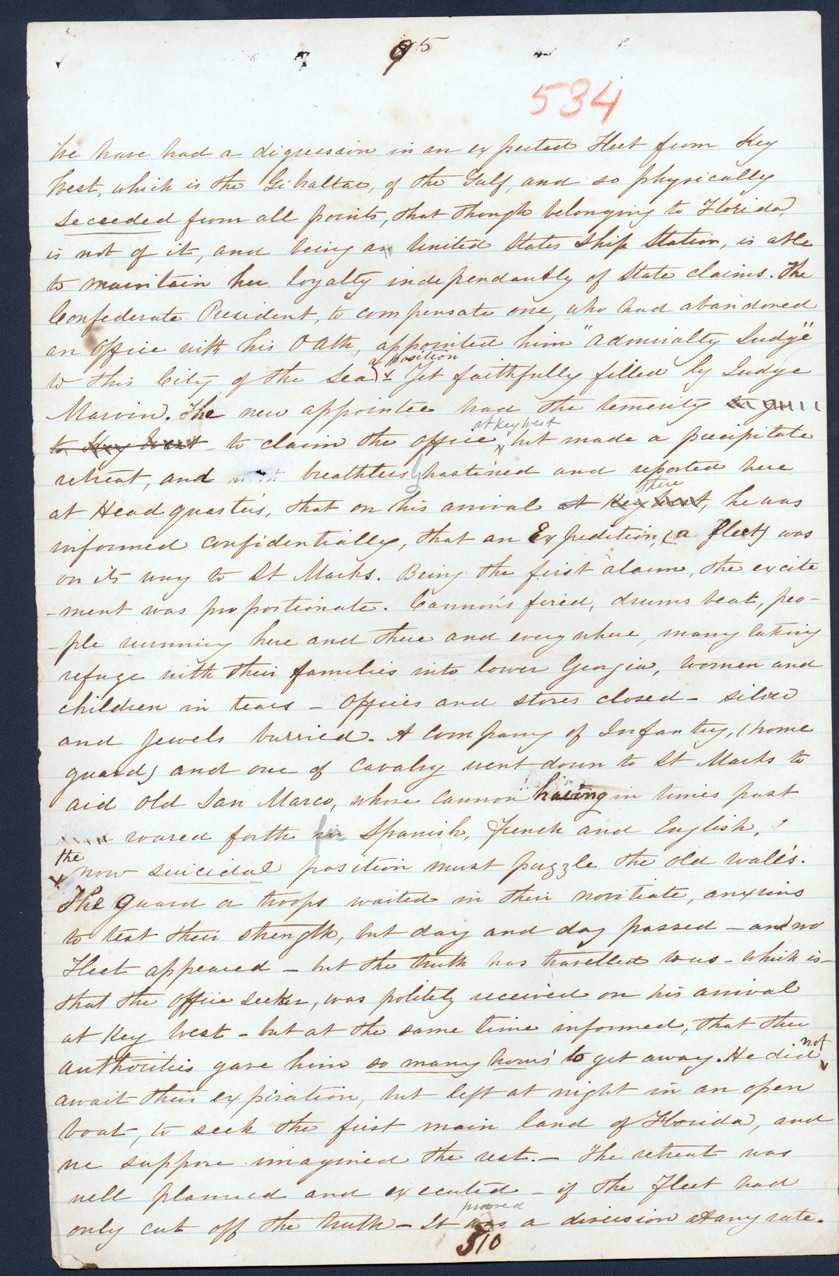 95
534
We have had a digression in an expected Fleet from Key
West, which is the Gibraltar, of the Gulf, and so physically
seceeded from all points, that though belonging to Florida,
is not of it, and being an United States Ship Station, is able
to maintain her loyalty independantly of State claims. The
Confederate President, to compensate one, who had abandoned
an office with his Oath, appointed him "Admiralty Judge"
to this City of the Sea, a position yet faithfully filled by Judge
Marvin. The new appointee had the temerity
to Key West to claim the office, at Key West but made a precipitate
retreat, and breathless hastened and reported here
at Head quarters, that on his arrival at Key West, there he was
informed confidentially, that an Expedition, (a fleet) was
on its way to St Marks. Being the first alarm, the excite
-ment was proportionate. Cannons fired, drums beat, peo-
-ple running here and there and everywhere, many taking
refuge with their families into lower Georgia, women and
children in tears - offices and stores closed - silver
and jewels burried. A Company of Infantry, (home
guard) and one of Cavalry went down to St Marks to
aid old San Marco, whose cannon having in times past
roared forth in Spanish, French and English,!
the now suicidal position must puzzle the old walls.
The guard & troops waited in their novitiate, anxious
to test their strength, but day and day passed - and no
Fleet appeared - but the truth has travelled to us - which is -
that the office seeker, was politely received on his arrival
at Key West - but at the same time informed, that the
authorities gave him so many hours' to get away. He did not
await their expiration, but left at night in an open
boat, to seek the first main land of Florida, and
we suppose imagined the rest. - The retreat was
well planned and executed - if the Fleet had
only cut off the truth - It proved a diversion at any rate.
510